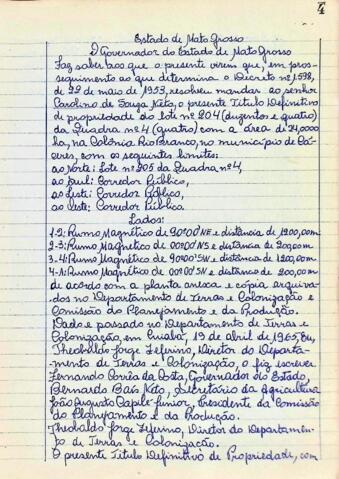 4
Estado de Mato Grosso
O Governador do Estado de Mato Grosso
Faz saber aos que o presente virem que, em pros-
seguimento ao que determina o Decreto nº 1.598,
de 22 de maio de 1953, resolveu mandar ao senhor
Carolino de Souza Neto, o presente Titulo Definitivo
de propriedade do lote nº 204 (duzentos e quatro)
da Quadra nº 4 (quatro) com a área de 24,0000
ha, na Colônia Rio Branco, no município de Cá-
ceres, com os seguintes limites:
ao Norte: Lote nº 205 da Quadra nº 4,
ao Sul: Corredor Público,
ao Leste: Corredor Público,
ao Oeste: Corredor Público.
Lados:
1-2: Rumo Magnético de 90º00' NE e distância de 1200,00m.
2-3: Rumo Magnético de 00º00' NS e distância de 200,00m
3-4: Rumo Magnético de 90º00' SW e distância de 1200,00m.
4-1: Rumo Magnético de 00º00' SN e distância de 200,00m
de acordo com a planta anexa e cópia arquiva-
das no Departamento de Terras e Colonização e
Comissão do Planejamento e da Produção.
Dado e passado no Departamento de Terras e
Colonização, em Cuiabá, 19 de abril de 1965, Eu,
Theobaldo Jorge Zeferino, Diretor do Departa-
mento de Terras e Colonização, o fiz escrever.
Fernando Corrêa da Costa, Governador do Estado,
Bernardo Bais Neto, Secretário da Agricultura
João Augusto Capilé Junior, Presidente da Comissão
do Planejamento e da Produção.
Theobaldo Jorge Zeferino, Diretor do Departamen-
to de Terras e Colonização.
O presente Titulo Definitivo de Propriedade, com